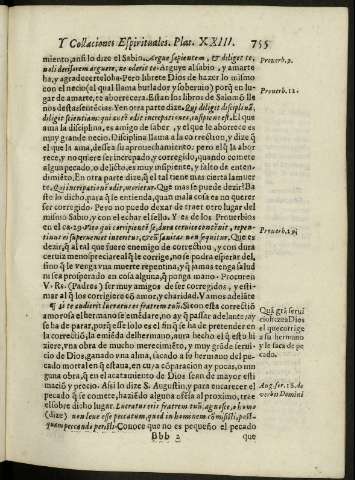 Y Collaciones Espirituales. Plat. XXIII. 755
miento, ansi lo dize el Sabio. Argue sapientem, & diliget te,
noli derisorem arguere, ne oderit te. Arguye al sabio, y amarte
ha, y agradecertelo ha. Pero librete Dios de hazer lo mismo
con el necio (al qual llama burlador y soberuio) porq̃ en lu
gar de amarte, te aborrecera. Estan los libros de Salomõ lle
nos destas sentẽcias. Y en otra parte dize. Qui diligit disciplinã,
diligit scientiam: qui autẽ odit increpationes, insipiens est. El que
ama la disciplina, es amigo de saber, y el que le aborrece es
muy grande necio. Disciplina llama a la correctiõ, y dize q̃
el que la ama, dessea su aprouechamiento. pero el q̃ la abor
rece, y no quiere ser increpado, y corregido, quando comete
algun pecado, o delicto, es muy insipiente, y falto de enten-
dimiẽto. En otra parte dize, q̃ el tal tiene mas cierta la muer
te. Qui increpationẽ odit, morietur. Que mas se puede dezir? Ba
sta lo dicho, para q̃ se entienda, quan mala cosa es no querer
ser corregido. Pero no puedo dexar de traer otro lugar del
mismo Sabio, y con el echar el sello. Y es de los Prouerbios
en el ca. 29. Viro qui corripientẽ se, dura ceruice cõtẽnit, repen-
tinus ei superueniet interitus, & eũ sanitas non sequitur. Que es
dezir, q̃ al tal que fuere enemigo de correctiõ, y con dura
ceruiz menospreciare al q̃ le corrige, no se podra esperar del,
sino q̃ le verga vna muerte repentina, y q̃ jamas tenga salud
ni sea prosperado en cosa alguna, q̃ ponga mano. Procuren
V. Rs. (Padres) ser muy amigos de ser corregidos, y esti-
mar al q̃ los corrigiere cõ amor, y charidad. Y amos adelãte
¶ Si te audierit lucratus es fratrem tuũ. Si con essa correctiõ
amorosa el hermano se emẽdare, no ay q̃ passar adelante, ay
se ha de parar, porq̃ esse solo es el fin q̃ se ha de pretender en
la correctiõ, la emiẽda del hermano, aura hecho el q̃ esto hi
ziere, vna obra de mucho merecimiẽto, y muy grãde serui-
cio de Dios, ganado vna alma, sacado a su hermano del pe-
cado mortal en q̃ estaua, en cuya cõparacion ay pocas, o nin
guna obra, q̃ en el acatamiento de Dios sean de mayor esti
maciõ y precio. Assi lo dize S. Augustin, y para encarecer el
pecado q̃ se comete, haziẽdo alguna ofẽsa al proximo, trae
el sobre dicho lugar. Lucratus eris fratrem tuũ, agnosce, o homo
(dize) non leue esse peccatum, quod in hominem cõmisisti, post-
quam peccando peristi. Conoce que no es pequeño el pecado
Bbb 2 que
Prouerb. 9.
Prouerb. 12.
Prouerb. 29
Quã grã serui
cio haze a Dios
el que corrige
a su hermano
y le saca de pe
cado.
Aug. ser. 16. de
verbis Domini